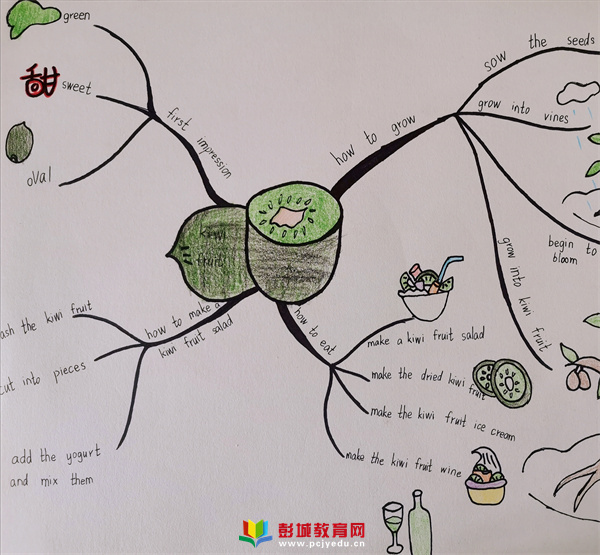 green
甜 sweet
oval
first impression
how to grow
sow the seeds
grow into vines
begin to
bloom
grow into kiwi fruit
kiwi
fruit
how to make a
kiwi fruit salad
ash the kiwi fruit
cut into pieces
add the yogurt
and mix them
how to eat
make a kiwi fruit salad
make the dried kiwi fruit
make the kiwi fruit ice cream
make the kiwi fruit wine
彭城教育网
www.pcjyedu.cn